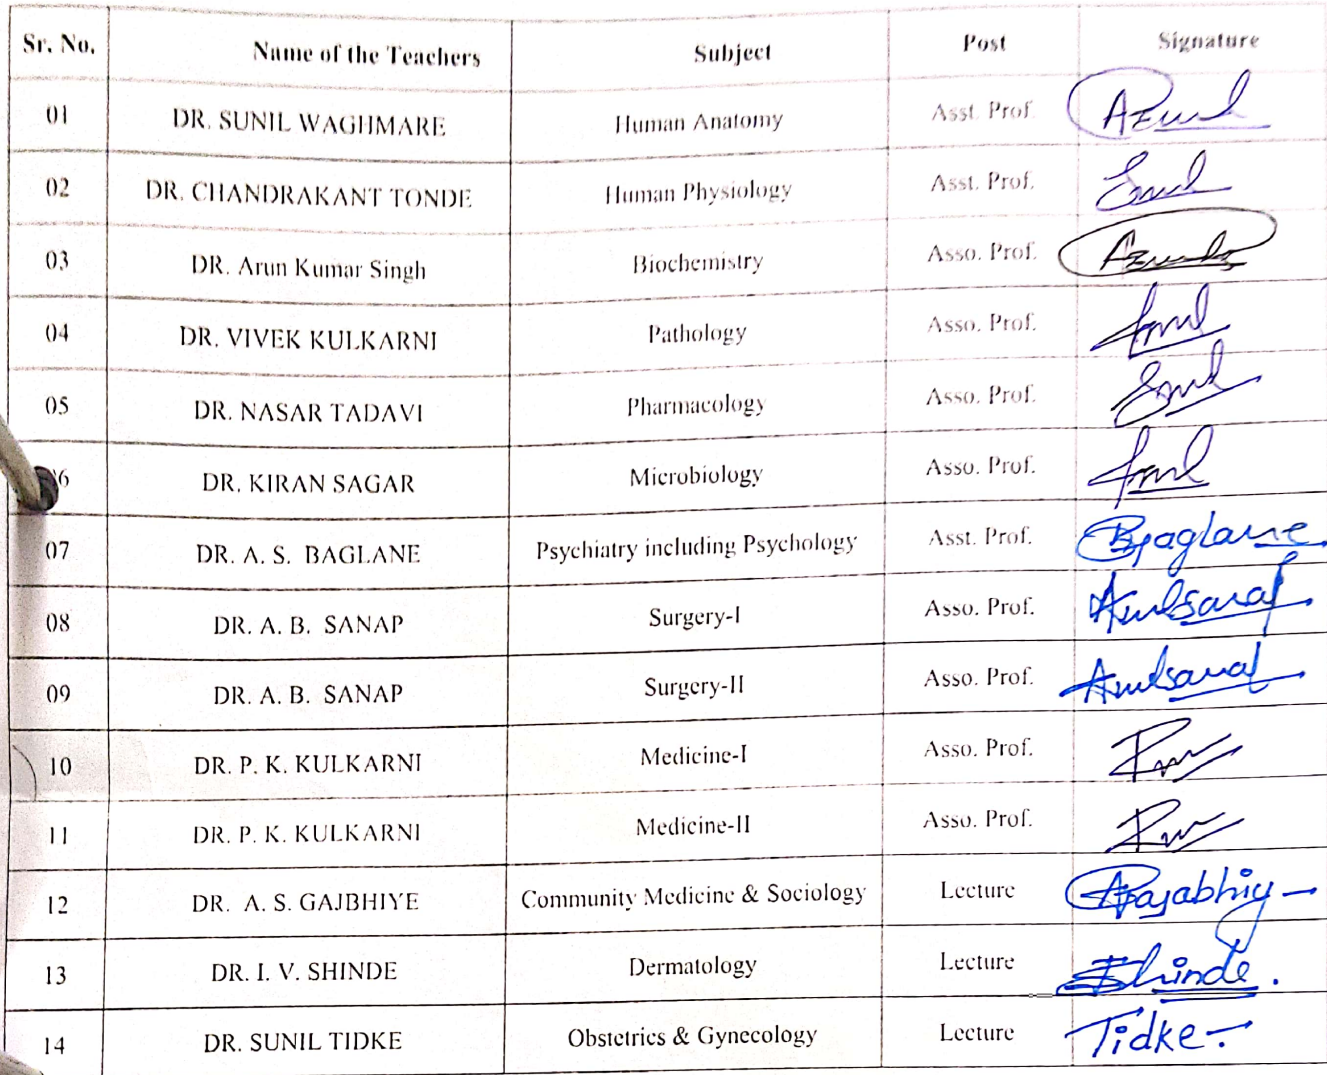 Sr. No. Name of the Teachers Subject Post Signature
01 DR. SUNIL WAGHMARE Human Anatomy Asst. Prof.
02 DR. CHANDRAKANT TONDE Human Physiology Asst. Prof.
03 DR. Arun Kumar Singh Biochemistry Asso. Prof.
04 DR. VIVEK KULKARNI Pathology Asso. Prof.
05 DR. NASAR TADAVI Pharmacology Asso. Prof.
6 DR. KIRAN SAGAR Microbiology Asso. Prof.
07 DR. A. S. BAGLANE Psychiatry including Psychology Asst. Prof. Baglane
08 DR. A. B. SANAP Surgery-I Asso. Prof.
09 DR. A. B. SANAP Surgery-II Asso. Prof.
10 DR. P. K. KULKARNI Medicine-I Asso. Prof.
11 DR. P. K. KULKARNI Medicine-II Asso. Prof.
12 DR. A. S. GAJBHIYE Community Medicine & Sociology Lecture
13 DR. I. V. SHINDE Dermatology Lecture Shinde.
14 DR. SUNIL TIDKE Obstetrics & Gynecology Lecture Tidke